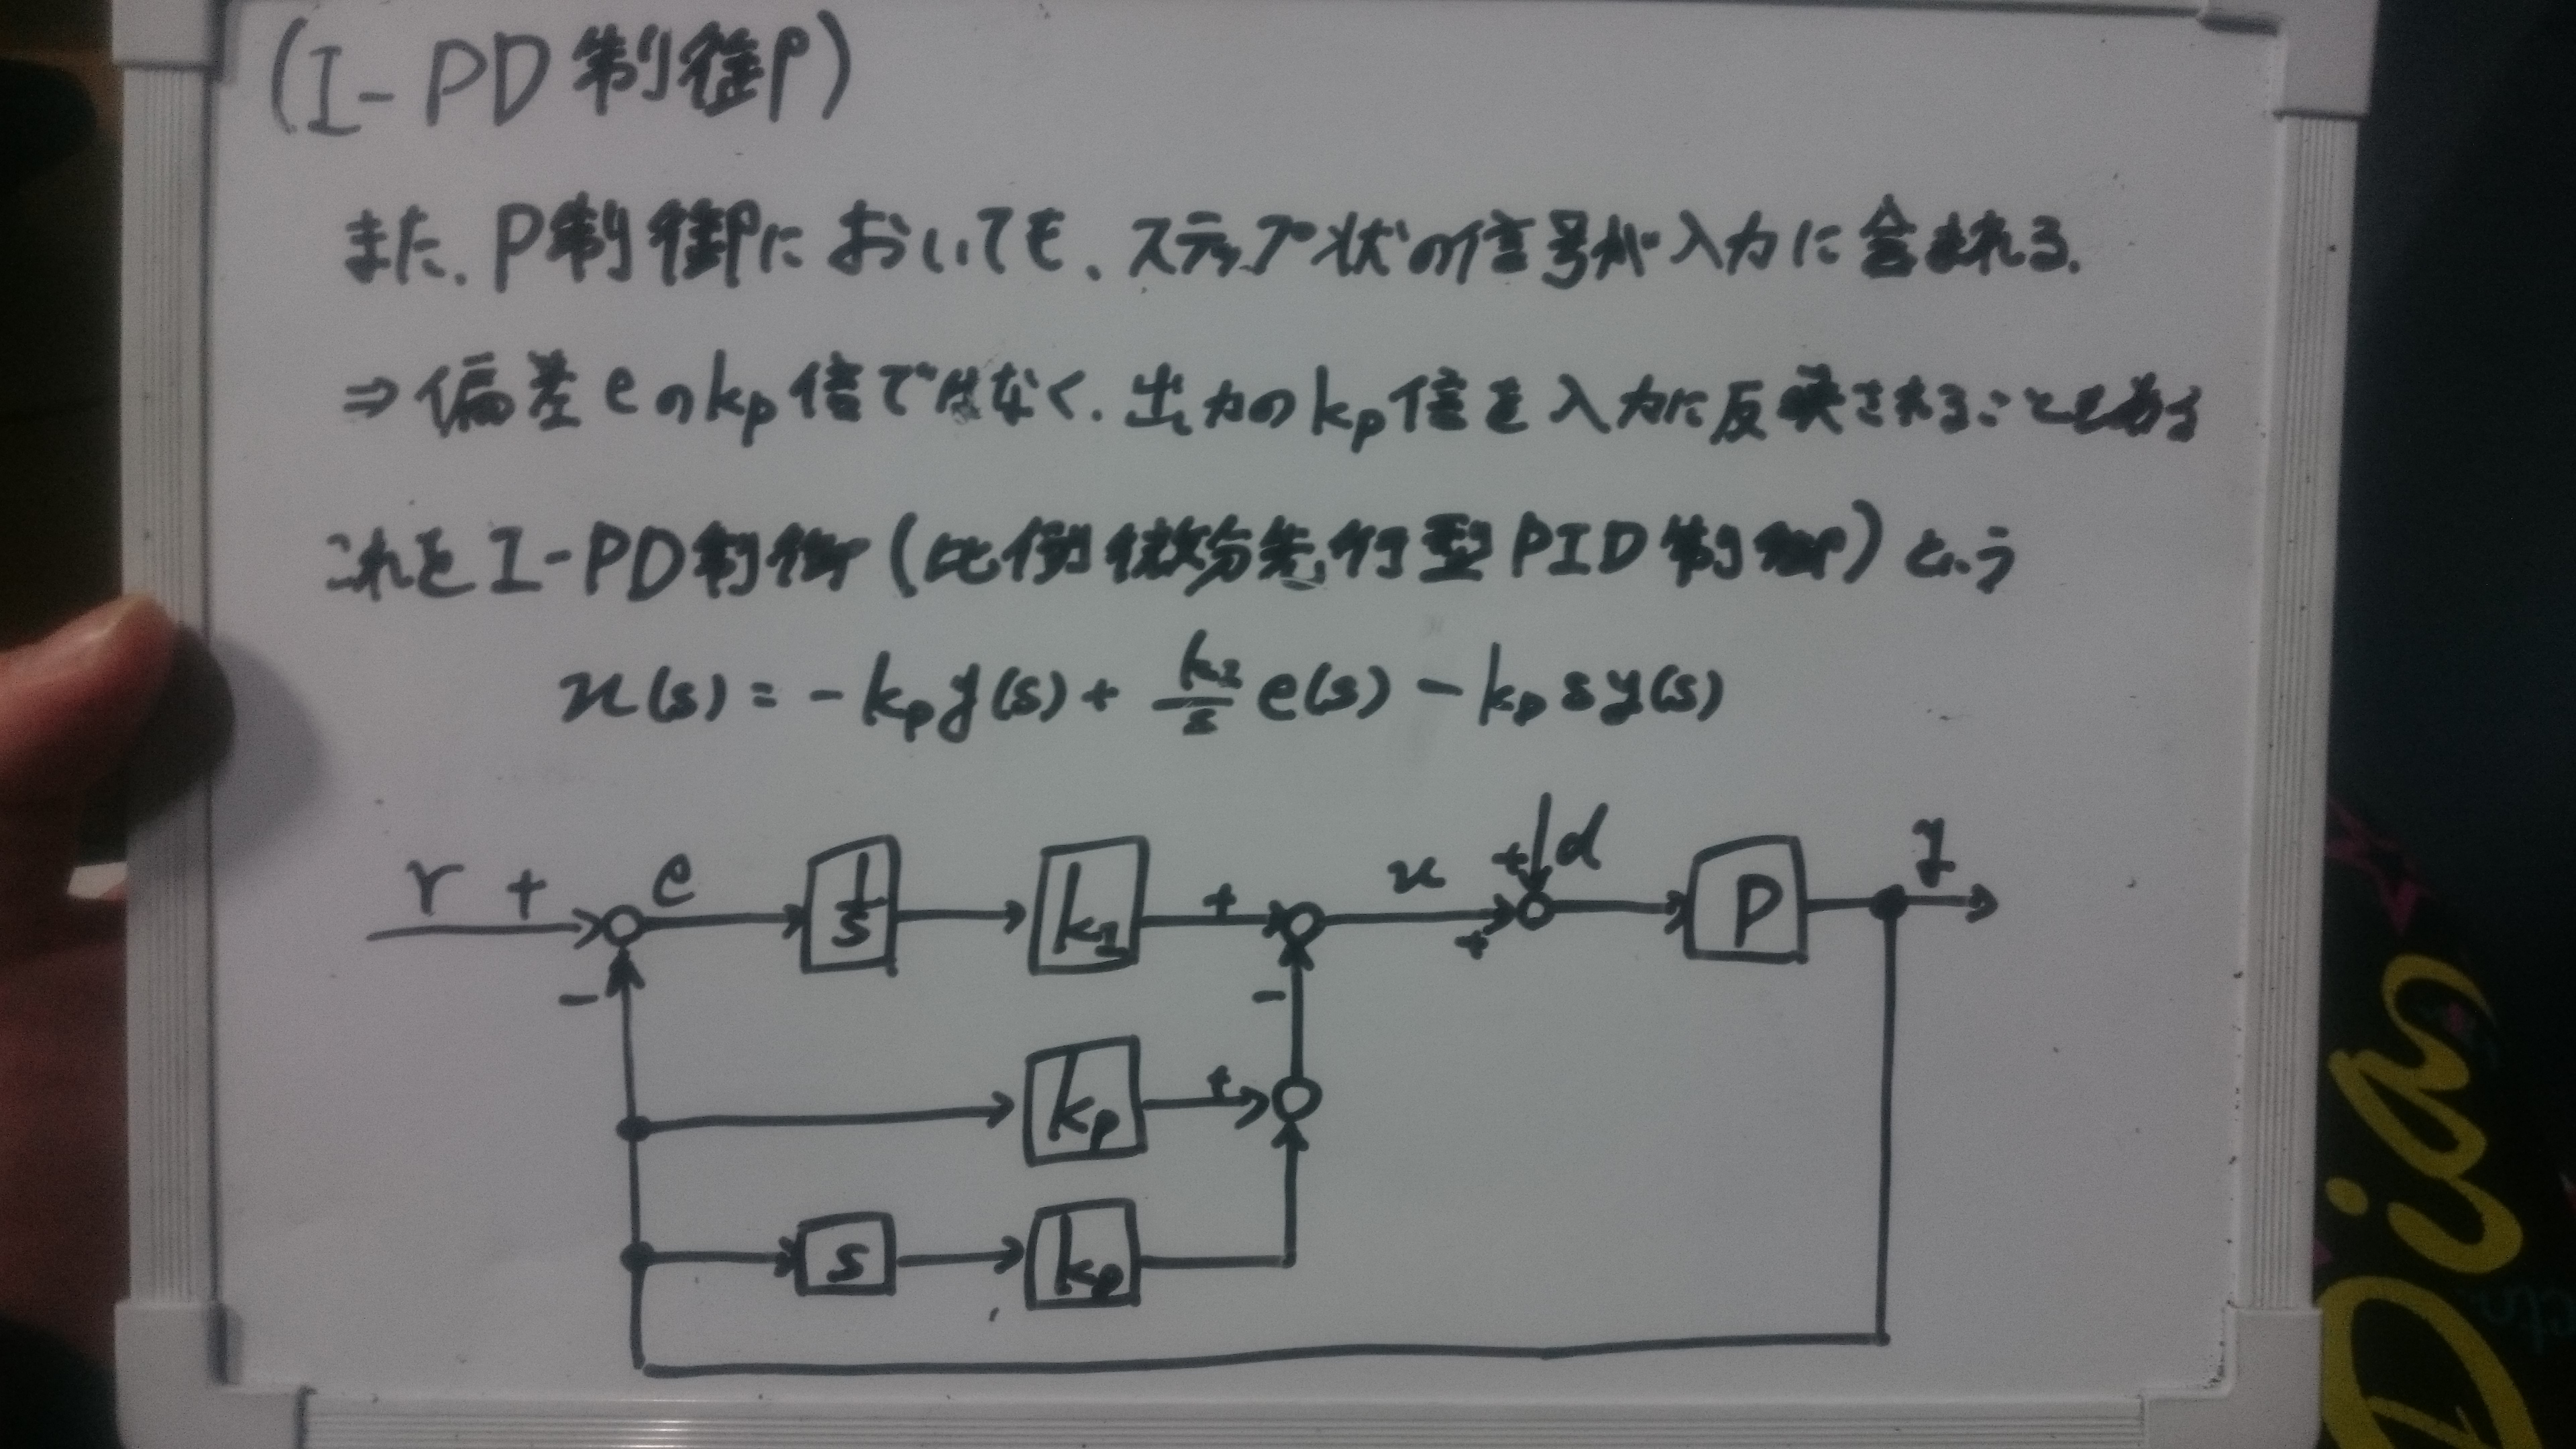 (I-PD制御)
また、P制御においても、ステップ状の信号が入力に含まれる.
⇒偏差eのkp倍ではなく、出力のkp倍を入力に反映されることもある
これをI-PD制御(比例微分先行型PID制御)という
u(s) = -kp y(s) + kI/s e(s) - kD s y(s)
r + e 1/s kI + u + + d P y
- -
kp +
s kD
Dia